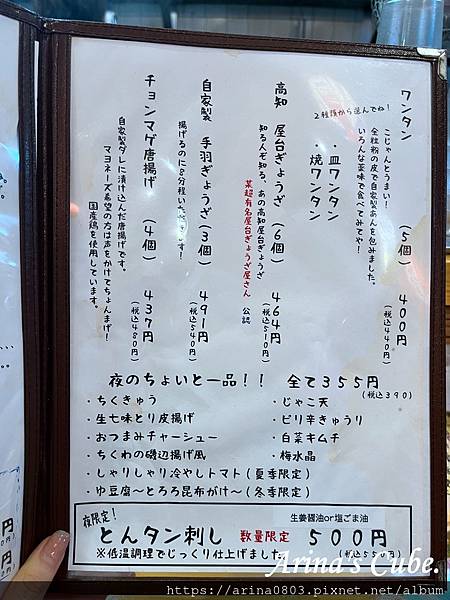 ワンタン （5個） 400円
（税込440円）
2種類から選んでね！
こじゃんとうまい！
全粒粉の皮で自家製あんを包みました。
いろんな薬味で食べてみてや！
・皿ワンタン
・焼ワンタン
高知 屋台ぎょうざ（6個） 464円
（税込510円）
知る人ぞ知る、あの高知屋台ぎょうざ
某超有名屋台ぎょうざ屋さん 公認
自家製 手羽ぎょうざ（3個） 491円
（税込540円）
揚げるのに8分程いただきます！
チョンマゲ唐揚げ （4個） 437円
（税込480円）
自家製ダレに漬け込んだ唐揚げです。
マヨネーズ希望の方は声をかけてちょんまげ！
国産鶏を使用しています。
夜のちょいと一品！！ 全て355円
（税込390）
・ちくきゅう
・生七味とり皮揚げ
・おつまみチャーシュー
・ちくわの磯辺揚げ風
・しゃりしゃり冷やしトマト（夏季限定）
・ゆ豆腐～とろろ昆布がけ～（冬季限定）
・じゃこ天
・ピリ辛きゅうり
・白菜キムチ
・梅水晶
夜限定！
生姜醤油or塩ごま油
とんタン刺し 数量限定 500円
※低温調理でじっくり仕上げました
（税込550円）
円
円
Arina's Cube.
https://arina0803.pixnet.net/album